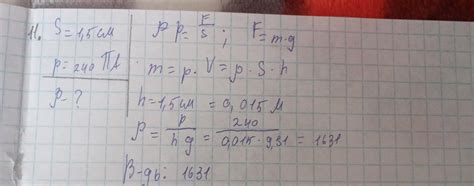 11. S = 1,5 см
p = 240 Па
ρ - ?
p = F/S ; F = m·g
m = ρ · V = ρ · S · h
h = 1,5 см = 0,015 м
ρ = p/hg = 240/0,015·9,81 = 1631
В-дь: 1631